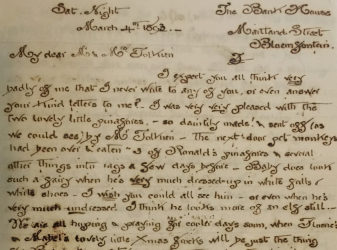 Sat. Night The Bank House
March 4th 1893. Maitland Street
Bloemfontein.
My dear Mr & Mrs Tolkien
I expect you all think very
badly of me that I never write to any of you, or even answer
your kind letters to me! I was very very pleased with the
two lovely little pinafores, - so daintily made & sent off (as
we could see) by Mr Tolkien - The next-door pet monkeys
had been over & eaten 3 of Ronald's pinafores & several
other things into rags a few days before - Baby does look
such a fairy when he's very much dressed-up in white frills &
white shoes - I wish you could all see him - or even when he's
very much undressed I think he looks more of an elf still -
We are all hoping & praying for cooler days soon, when
Mabel's lovely little Xmas frocks will be just the thing